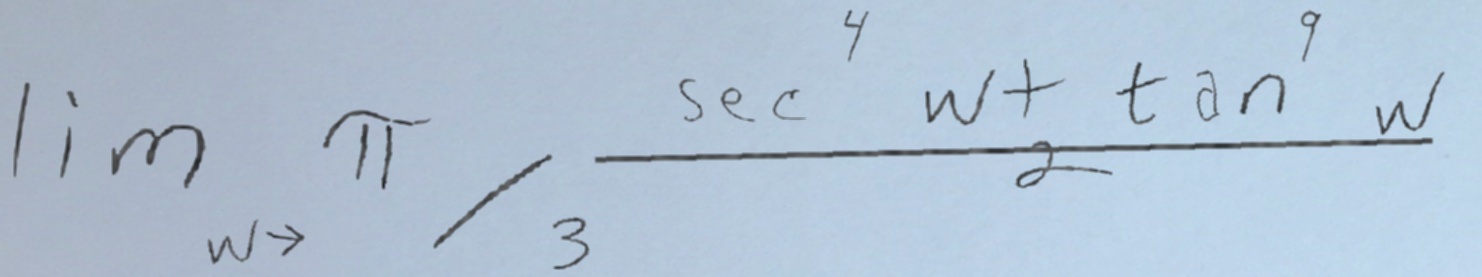 \lim_{w \to \pi/3} \frac{\sec^4 w + \tan^9 w}{2}